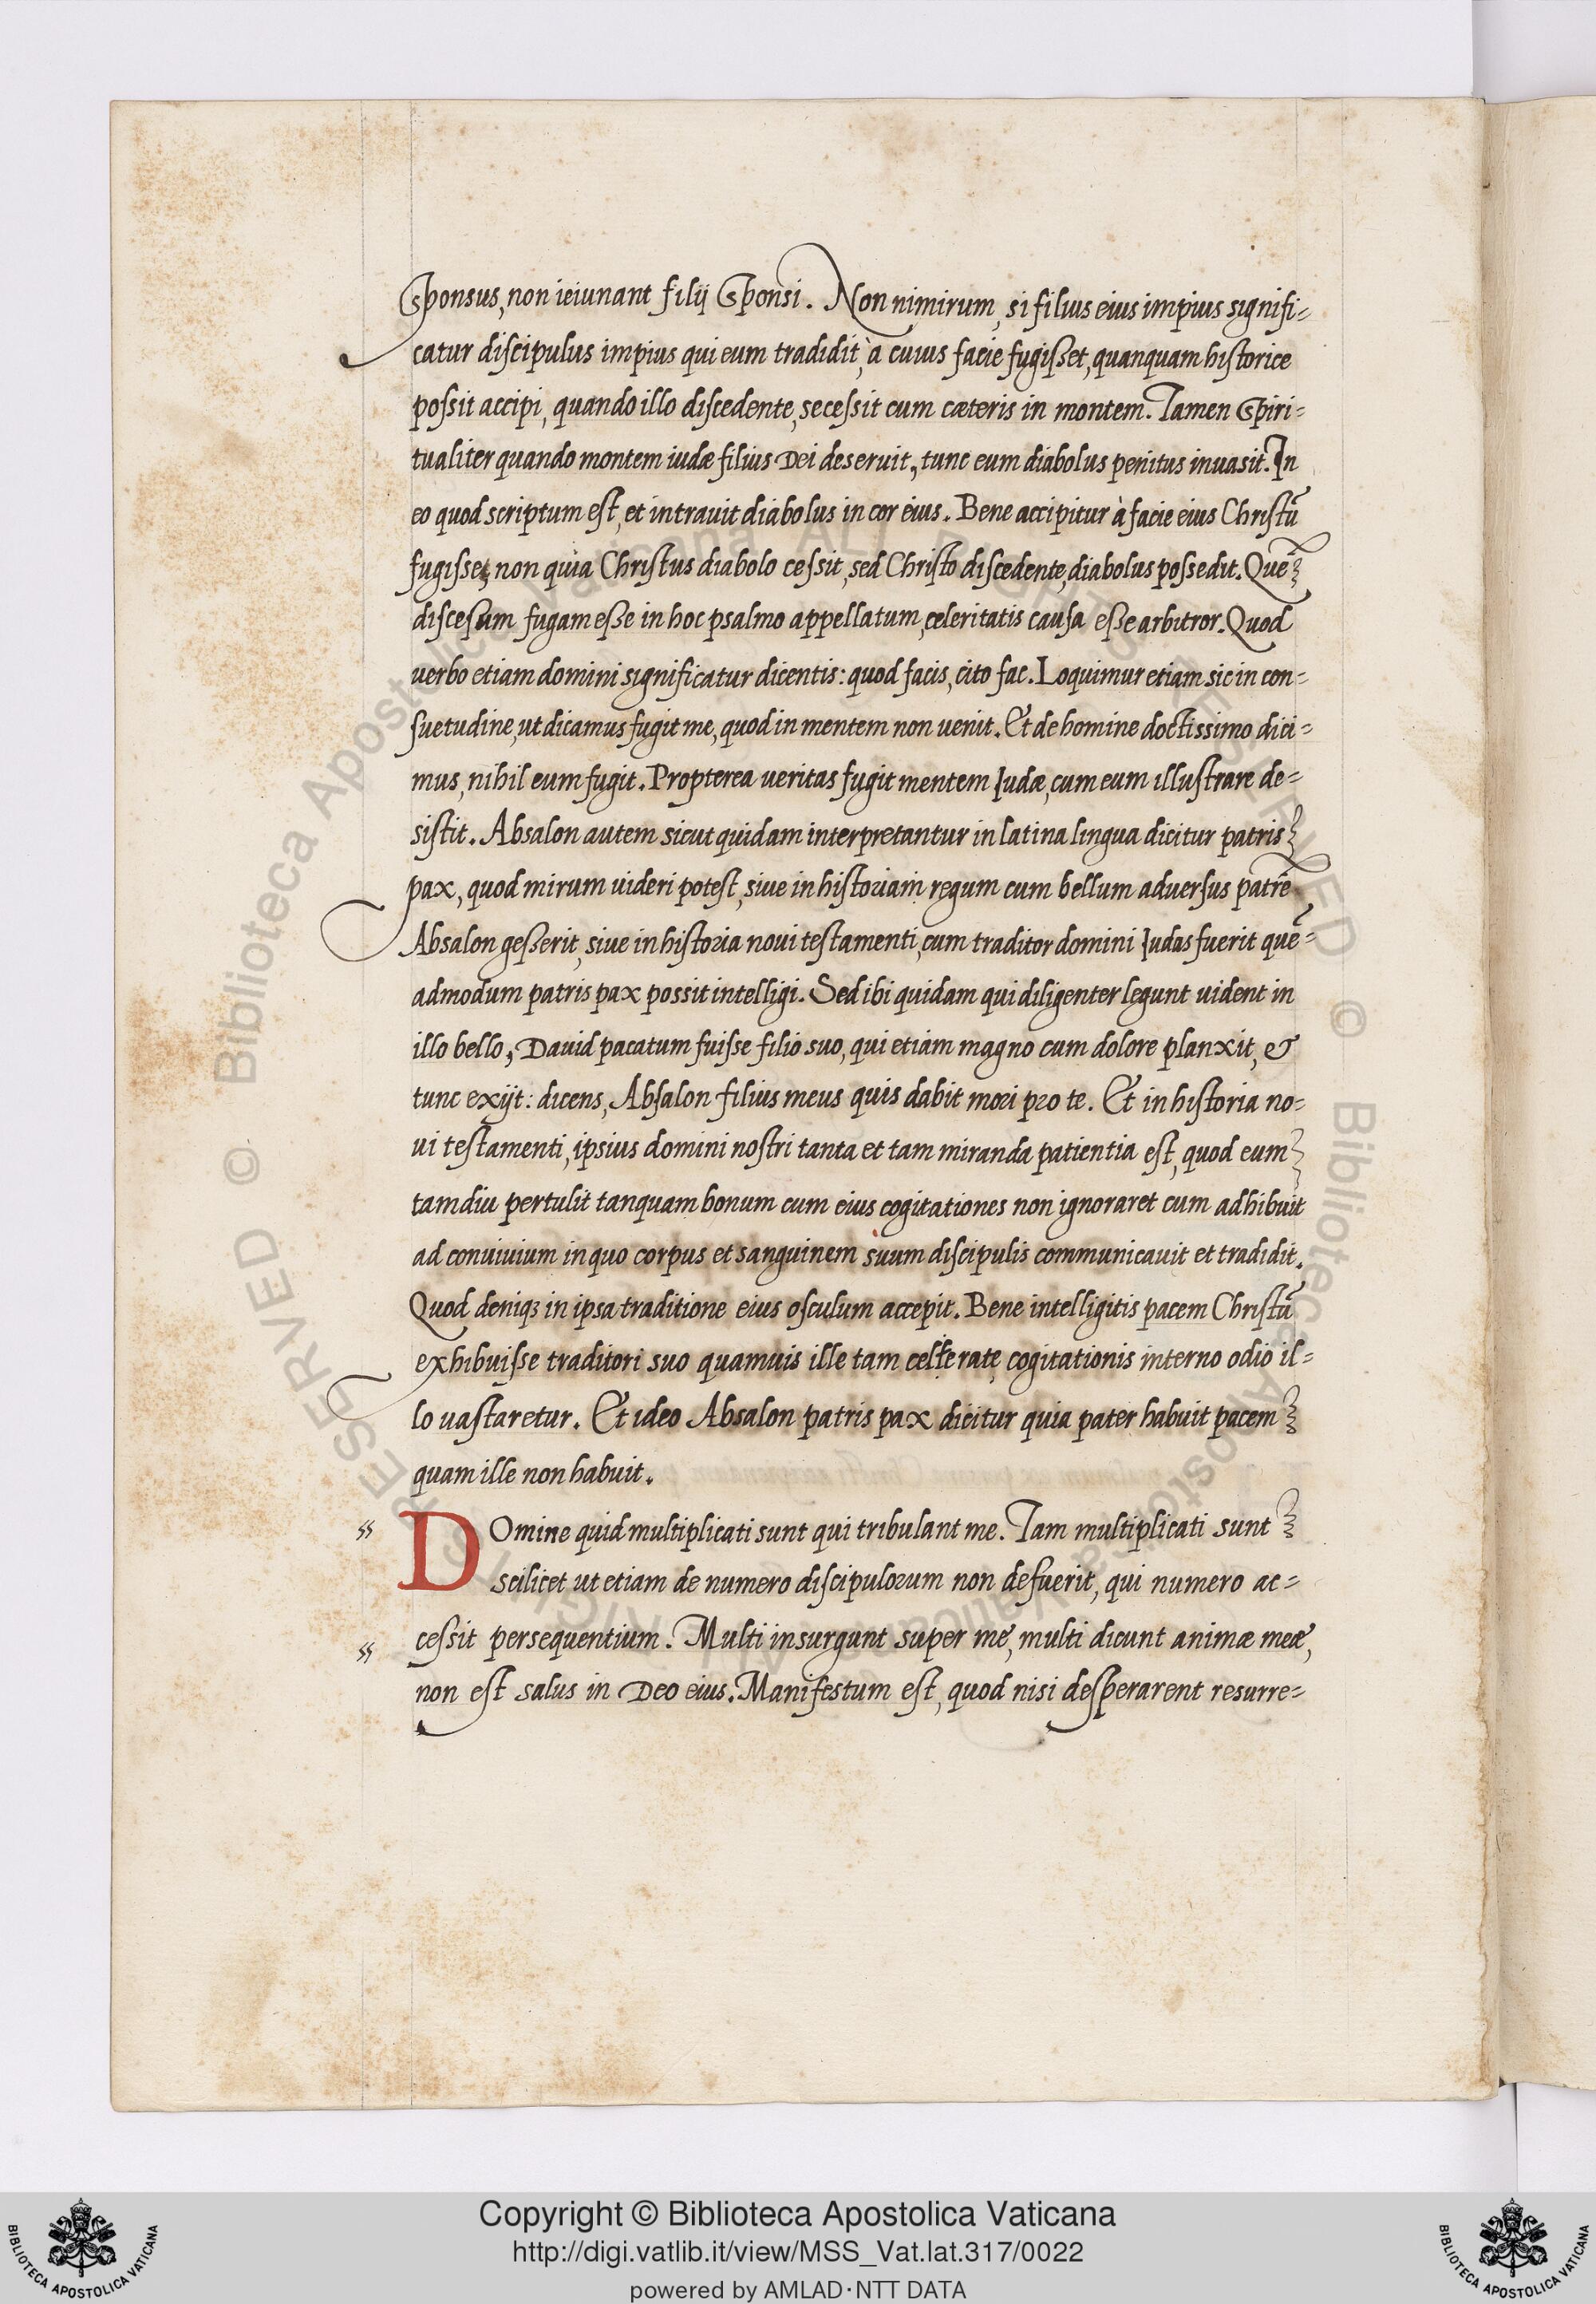 Sponsus, non ieiunant filij Sponsi. Non nimirum, si filius eius impius signifi-
catur discipulus impius qui eum tradidit, à cuius facie fugisset, quanquam historice
possit accipi, quando illo discedente, secessit cum cæteris in montem. Tamen Spiri-
tualiter quando montem iudæ filius Dei deseruit, tunc eum diabolus penitus inuasit. In
eo quod scriptum est, et intrauit diabolus in cor eius. Bene accipitur à facie eius Christū
fugisset, non quia Christus diabolo cessit, sed Christo discedente, diabolus possedit. Quē
discesum fugam esse in hoc psalmo appellatum, celeritatis causa esse arbitror. Quod
uerbo etiam domini significatur dicentis: quod facis, cito fac. Loquimur etiam sic in con-
suetudine, ut dicamus fugit me, quod in mentem non uenit. Et de homine doctissimo dici-
mus, nihil eum fugit. Propterea ueritas fugit mentem Iudæ, cum eum illustrare de-
sistit. Absalon autem sicut quidam interpretantur in latina lingua dicitur patris
pax, quod mirum uideri potest, siue in historiam regum cum bellum aduersus patrē
Absalon gesserit, siue in historia noui testamenti, cum traditor domini Iudas fuerit quē-
admodum patris pax possit intelligi. Sed ibi quidam qui diligenter legunt uident in
illo bello, Dauid pacatum fuisse filio suo, qui etiam magno cum dolore planxit, &
tunc exijt: dicens, Absalon filius meus quis dabit mori pro te. Et in historia no-
ui testamenti, ipsius domini nostri tanta et tam miranda patientia est, quod eum
tamdiu pertulit tanquam bonum cum eius cogitationes non ignoraret cum adhibuit
ad conuiuium in quo corpus et sanguinem suum discipulis communicauit et tradidit.
Quod deniqꝫ in ipsa traditione eius osculum accepit. Bene intelligitis pacem Christū
exhibuisse traditori suo quamuis ille tam cogitationis interno odio il-
lo uastaretur. Et ideo Absalon patris pax dicitur quia pater habuit pacem
quam ille non habuit.
DOmine quid multiplicati sunt qui tribulant me. Tam multiplicati sunt
scilicet ut etiam de numero discipulorum non defuerit, qui numero ac-
cessit persequentium. Multi insurgunt super me, multi dicunt animæ meæ,
non est salus in Deo eius. Manifestum est, quod nisi desperarent resurre-
Copyright © Biblioteca Apostolica Vaticana
http://digi.vatlib.it/view/MSS_Vat.lat.317/0022
powered by AMLAD·NTT DATA